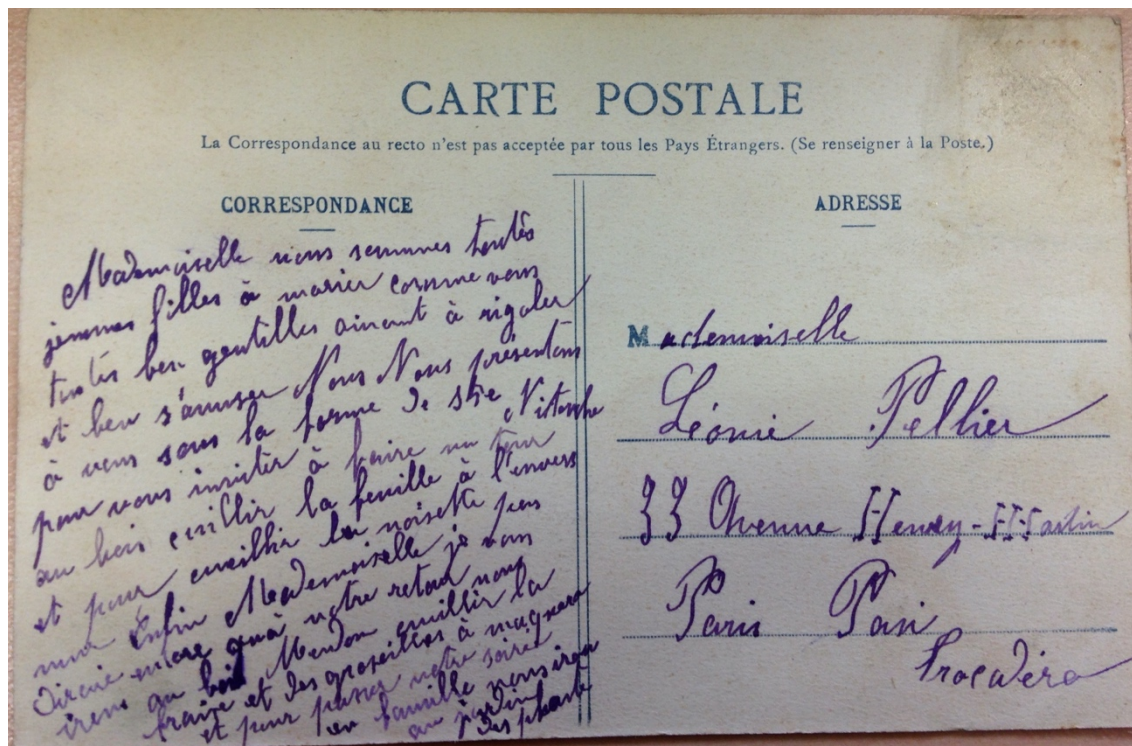 CARTE POSTALE
La Correspondance au recto n'est pas acceptée par tous les Pays Étrangers. (Se renseigner à la Poste.)
CORRESPONDANCE
Mademoiselle nous sommes toutes
jeunes filles à marier comme vous
toutes ben gentilles aimant à rigoler
et ben s'amuser Nous Nous présentons
à vous sous la forme de Ste Nitouche
pour vous inviter à faire un tour
au bois cuillir la feuille à l'envers
et pour cueillir la noisette pas
mur Enfin Mademoiselle je vous
dirai encore qu'à notre retour nous
irons au bois Meudon cuillir la
fraise et des groseilles à
et pour passer notre soirée
en famille nous iron
au jardin
des plante
ADRESSE
Mademoiselle
Léonie Pellier
33 Avenue Henry-Martin
Paris Pasi
Trocadero